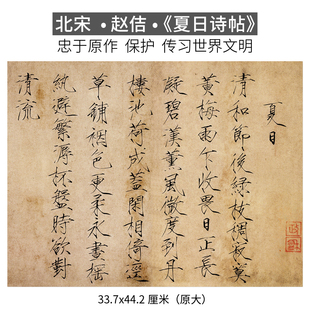 北宋·赵佶·《夏日诗帖》
忠于原作 保护 传习世界文明
夏日
清和節後綠枝稠寂寞
黃梅雨乍收畏日正長
凝碧漢薰風微度到丹
樓池荷成蓋閑相倚逕
草鋪裀色更柔永晝搖
紈避繁溽杯盤時欲對
清流
33.7x44.2 厘米（原大）